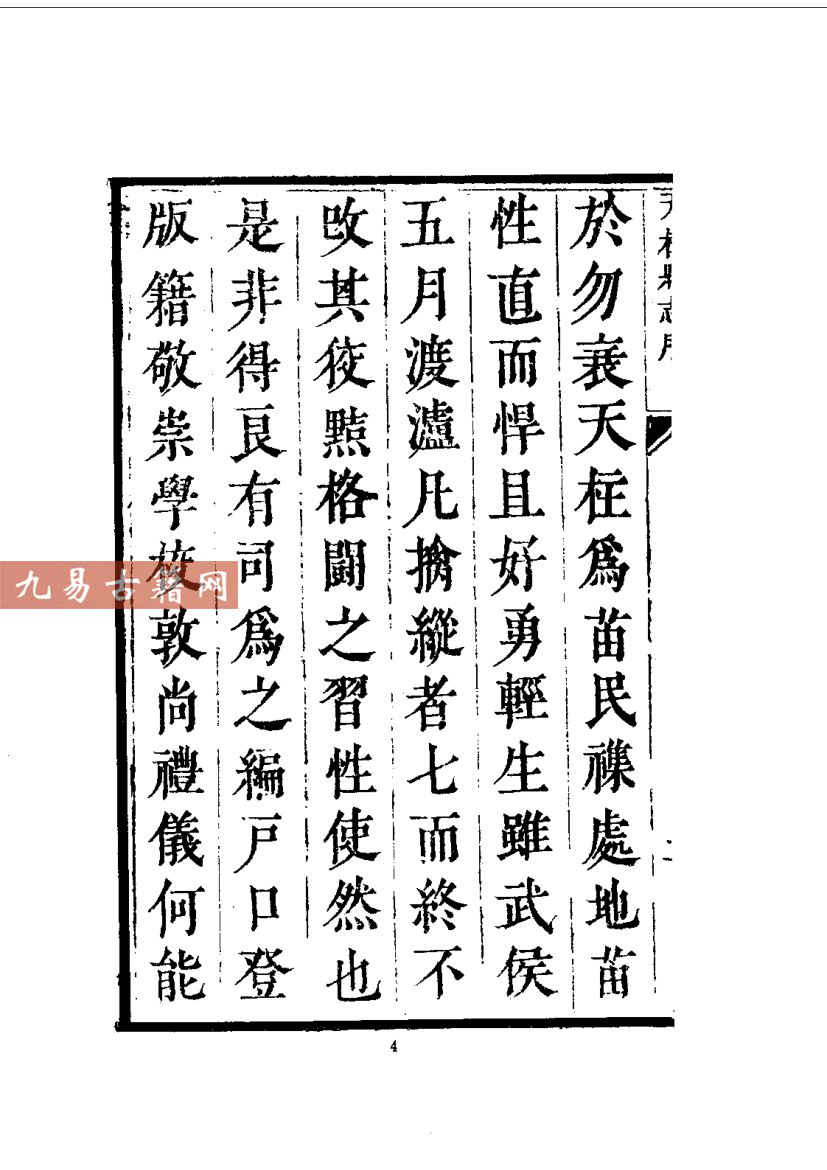 天柱縣志序
於勿衰天柱爲苗民襍處地苗
性直而悍且好勇輕生雖武侯
五月渡瀘凡擒縱者七而終不
改其狡黠格鬭之習性使然也
是非得良有司爲之編戸口登
版籍敬崇學校敦尚禮儀何能
九易古籍网
4